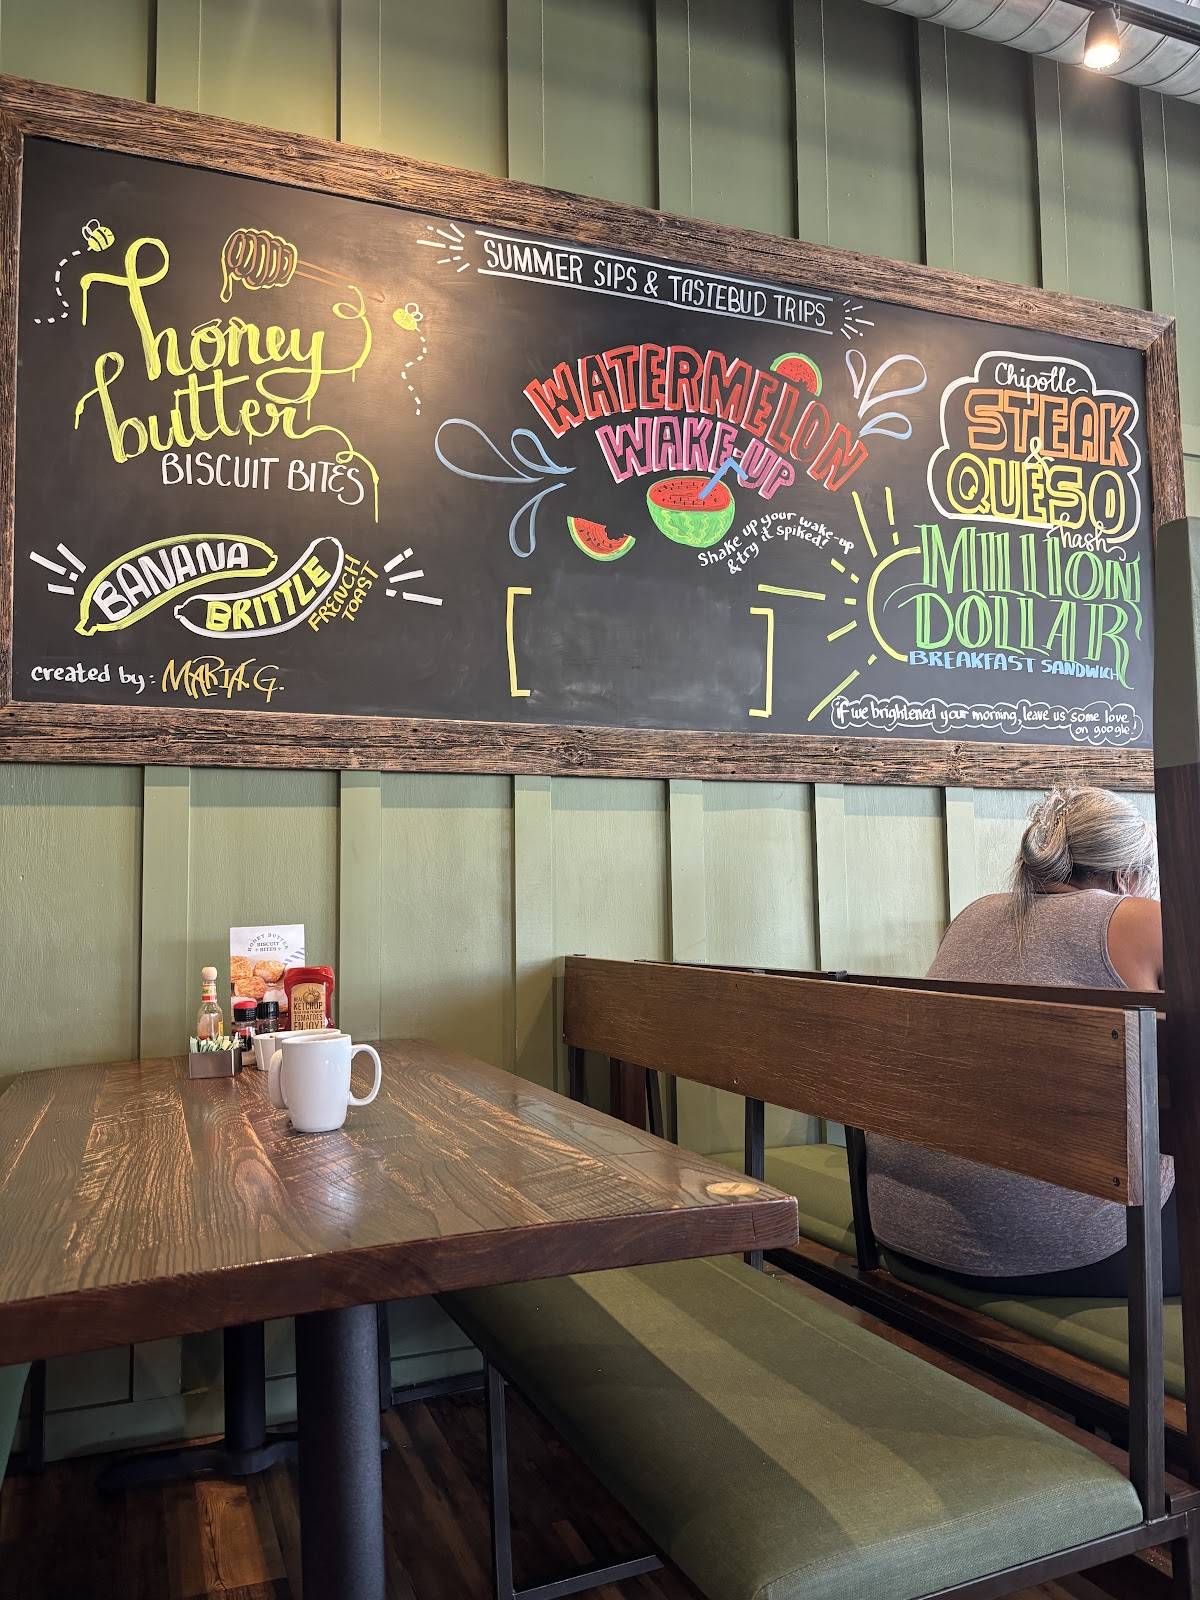 honey
butter
BISCUIT BITES
BANANA
BRITTLE
FRENCH
TOAST
created by: MARIA G.
SUMMER SIPS & TASTEBUD TRIPS
WATERMELON
WAKE-UP
Shake up your wake-up
& try it spiked!
Chipotle
STEAK
&
QUESO
hash
MILLION
DOLLAR
BREAKFAST SANDWICH
if we brightened your morning, leave us some love
on google!
HONEY BUTTER
BISCUIT
BITES
KETCHUP
TOMATOES
ENJOY!